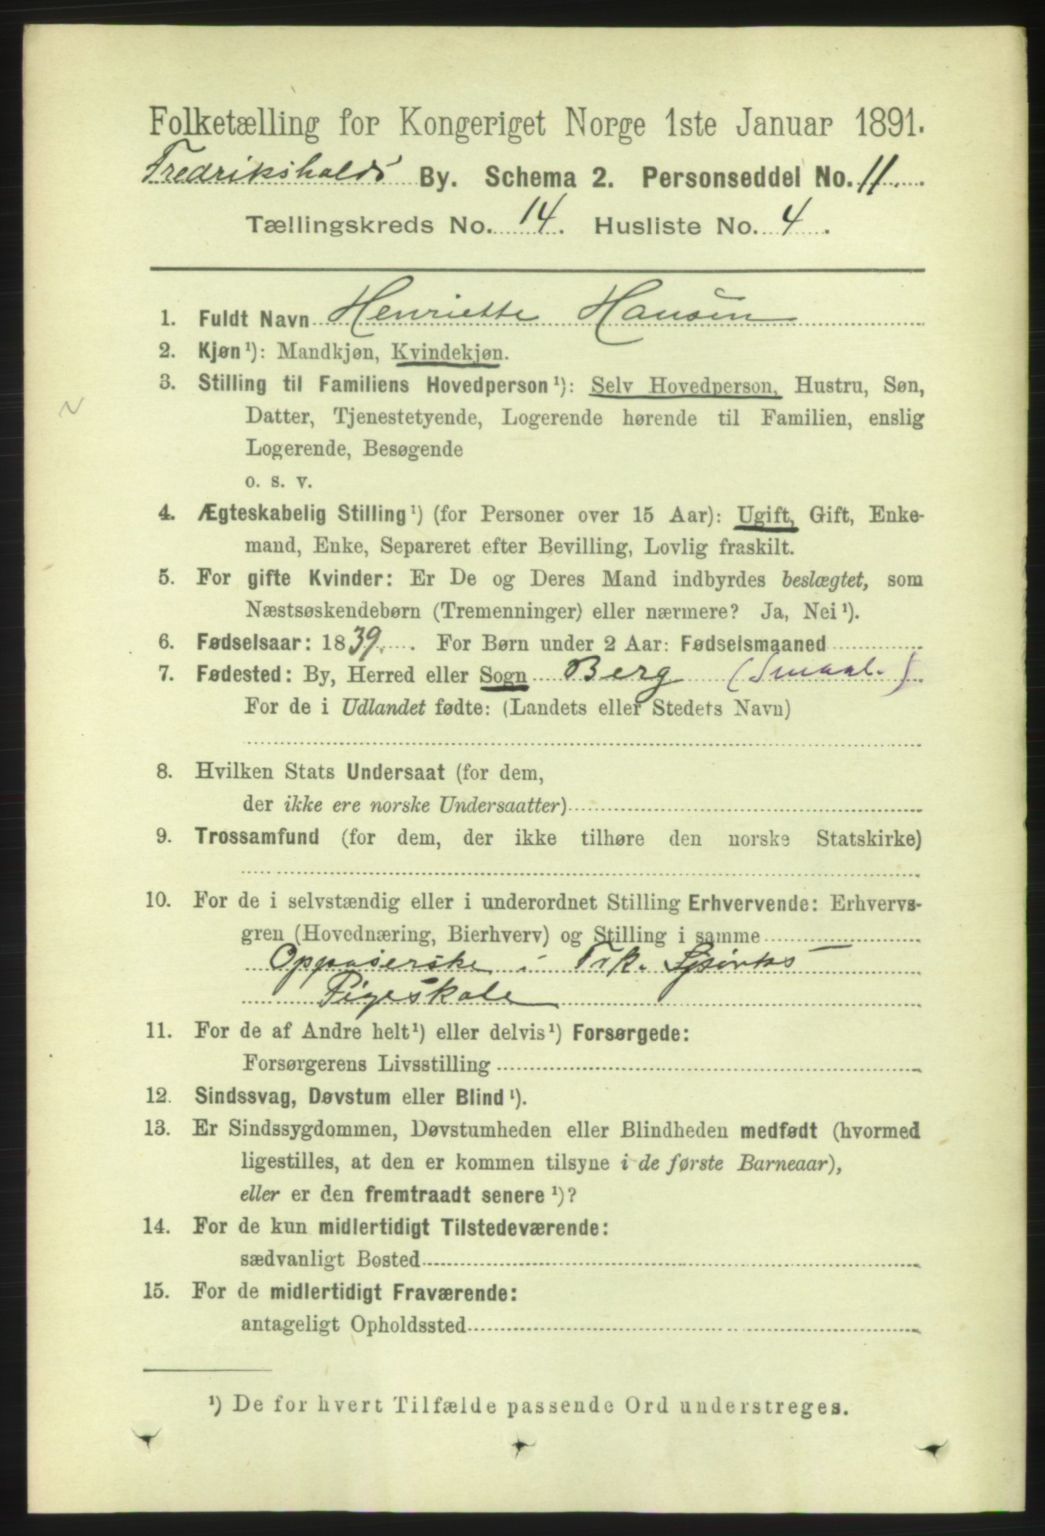 Folketælling for Kongeriget Norge 1ste Januar 1891.
Fredrikshalds By. Schema 2. Personseddel No. 11.
Tællingskreds No. 14. Husliste No. 4.
1. Fuldt Navn Henriette Hansen
2. Kjøn ¹): Mandkjøn, Kvindekjøn.
3. Stilling til Familiens Hovedperson ¹): Selv Hovedperson, Hustru, Søn,
Datter, Tjenestetyende, Logerende hørende til Familien, enslig
Logerende, Besøgende
o. s. v.
4. Ægteskabelig Stilling ¹) (for Personer over 15 Aar): Ugift, Gift, Enke-
mand, Enke, Separeret efter Bevilling, Lovlig fraskilt.
5. For gifte Kvinder: Er De og Deres Mand indbyrdes beslægtet, som
Næstsøskendebørn (Tremenninger) eller nærmere? Ja, Nei ¹).
6. Fødselsaar: 1839. For Børn under 2 Aar: Fødselsmaaned
7. Fødested: By, Herred eller Sogn Berg (Smaal.)
For de i Udlandet fødte: (Landets eller Stedets Navn)
8. Hvilken Stats Undersaat (for dem,
der ikke ere norske Undersaatter)
9. Trossamfund (for dem, der ikke tilhøre den norske Statskirke)
10. For de i selvstændig eller i underordnet Stilling Erhvervende: Erhvervs-
gren (Hovednæring, Bierhverv) og Stilling i samme
Oppaserske i Frk.
Pigeskole
11. For de af Andre helt ¹) eller delvis ¹) Forsørgede:
Forsørgerens Livsstilling
12. Sindssvag, Døvstum eller Blind ¹).
13. Er Sindssygdommen, Døvstumheden eller Blindheden medfødt (hvormed
ligestilles, at den er kommen tilsyne i de første Barneaar),
eller er den fremtraadt senere ¹)?
14. For de kun midlertidigt Tilstedeværende:
sædvanligt Bosted
15. For de midlertidigt Fraværende:
antageligt Opholdssted
¹) De for hvert Tilfælde passende Ord understreges.